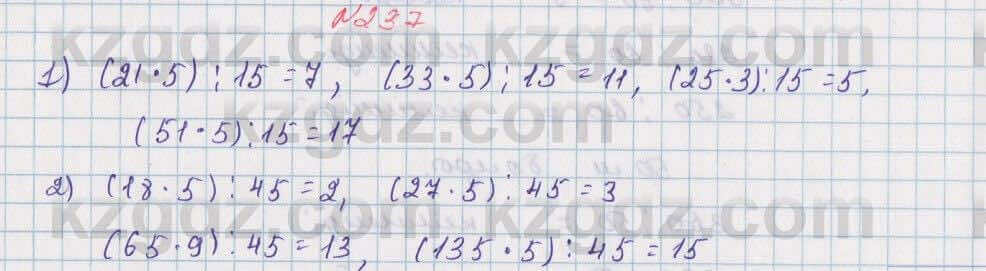 №237
1) (21·5):15=7, (33·5):15=11, (25·3):15=5,
(51·5):15=17
2) (18·5):45=2, (27·5):45=3
(65·9):45=13, (135·5):45=15
kzgdz.com
kzgdz.com
kzgdz.com
kzgdz.com
kzgdz.com